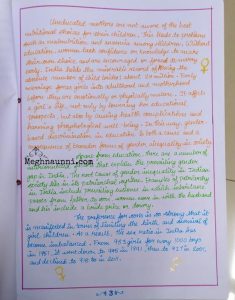 Uneducated mothers are not aware of the best
nutritional choices for their children. This leads to problems
such as malnutrition, and anaemia among children. Without
education, women lack confidence or knowledge to make
their own choice, and are encouraged to marry
early. India holds the record of having the
number of child brides: about 24 million. Early
marriage forces girls into adulthood and motherhood
when they are not emotionally or physically mature. It affects
a girl's life, not only by lowering her educational
prospects, but also by causing health complications and
harming psychological well-being. In this way, gender-
based discrimination in education is both a cause and a
consequence of broader forms of gender inequality in society.
Meghnaunni.com
Apart from education, there are a number of
that explain the prevailing gender
gap in India. The root cause of gender inequality in Indian
society lies in its patriarchal system. Examples of patriarchy
in India include prevailing customs in which inheritance
passes from father to son, women move in with the husband
and his include a bride price or dowry.
The preference for sons is so strong that it
is manifested in terms of limiting the birth and survival of
girl children. As a result, the sex ratio in India has
become imbalanced. From 983 girls for every 1000 boys
in 1951, it went down to 945 in 1991, then to 927 in 2001,
and declined to 918 in 2011.